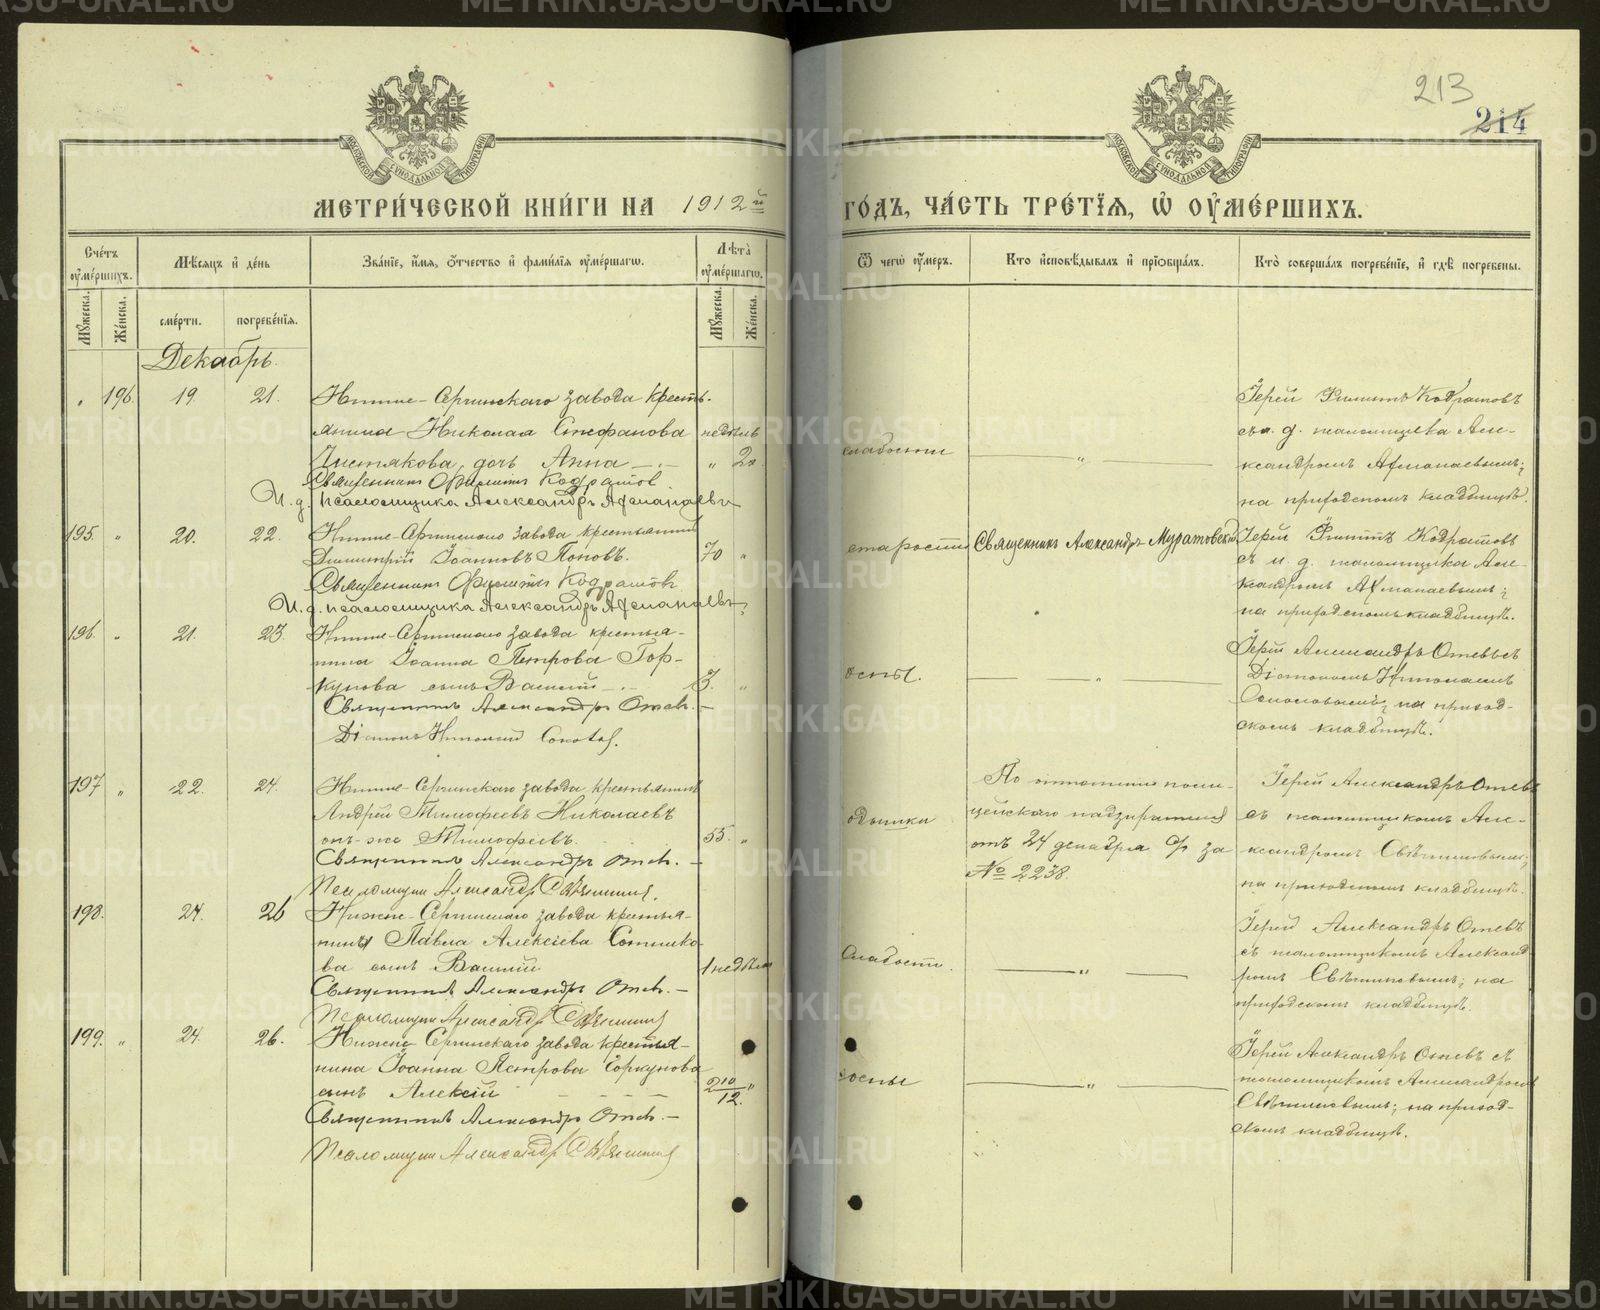 213
214
МЕТРИ́ЧЕСКОЙ КНИ́ГИ НА 1912й
ГО́ДЪ, ЧА́СТЬ ТРЕ́ТЇѦ, Ѽ ОУ҆МЕ́РШИХЪ.
Сче́тъ оу҆ме́ршихъ.
Мѣ́сѧцъ и҆ де́нь
Зва́нїе, и҆́мѧ, ѻ҆́тчество и҆ фами́лїѧ оу҆ме́ршагѡ.
Лѣ́та оу҆ме́ршагѡ.
Ѿ чегѡ̀ оу҆́меръ.
Кто̀ и҆сповѣ́дывалъ и҆ прїѡбща́лъ.
Кто̀ соверша́лъ погребе́нїе, и҆ гдѣ̀ погребены̀.
Мꙋ́жеска.
Же́нска.
сме́рти.
погребе́нїѧ.
Мꙋ́жеска.
Же́нска.
Декабрь.
„ 196. 19. 21. Нижне-Сергинскаго завода кресть-
янина Николая Стефанова недѣль
Чистякова, дочь Анна „ 2.
Священникъ Филиппъ Кодратов
И. д. псаломщика Александръ Афанасьевъ
слабости
„
Іерей Филиппъ Кодратовъ
съ и. д. псаломщика Але-
ксандромъ Афанасьевымъ;
на приходскомъ кладбищѣ.
195. „ 20. 22. Нижне-Сергинскаго завода крестьянинъ
Димитрий Іоанновъ Поповъ. 70 „
Священникъ Филиппъ Кодратовъ
И. д. псаломщика Александръ Афанасьевъ,
старости
Священникъ Александръ Муратовский
Іерей Филиппъ Кодратовъ
съ и. д. псаломщика Але-
ксандромъ Афанасьевымъ;
на приходскомъ кладбищѣ.
196. „ 21. 23. Нижне-Сергинскаго завода крестья-
нина Іоанна Петрова Гор-
кунова сынъ Василій 3. „
Священникъ Александръ Отевъ.
Діаконъ Николай
оспы.
„
Іерей Александръ Отевъ съ
Діакономъ Николаемъ
на приход-
скомъ кладбищѣ.
197 „ 22. 24. Нижне-Сергинскаго завода крестьянинъ
Андрей Тимофеевъ Николаевъ
онъ-же Тимофеевъ. 55. „
Священникъ Александръ Отевъ.
Псаломщикъ Александръ Свѣчниковъ.
одышки
По отношенію поли-
цейскаго надзирателя
отъ 24 декабря с/г за
№ 2238
Іерей Александръ Отевъ
съ псаломщикомъ Але-
ксандромъ Свѣчниковымъ;
на приходскомъ кладбищѣ.
198. 24. 26 Нижне-Сергинскаго завода крестья-
нина Павла Алексіева Сотнико-
ва сынъ Василій 1 недѣля
Священникъ Александръ Отевъ.
Псаломщикъ Александръ Свѣчниковъ
Слабости.
„
Іерей Александръ Отевъ
съ псаломщикомъ Александ-
ромъ Свѣчниковымъ; на
приходскомъ кладбищѣ.
199. „ 24. 26. Нижне-Сергинскаго завода крестья-
нина Іоанна Петрова Горкунова
сынъ Алексій 2 10/12. „
Священникъ Александръ Отевъ.
Псаломщикъ Александръ Свѣчниковъ
оспы
„
Іерей Александръ Отевъ съ
псаломщикомъ Александромъ
Свѣчниковымъ; на приход-
скомъ кладбищѣ.
METRIKI.GASO-URAL.RU